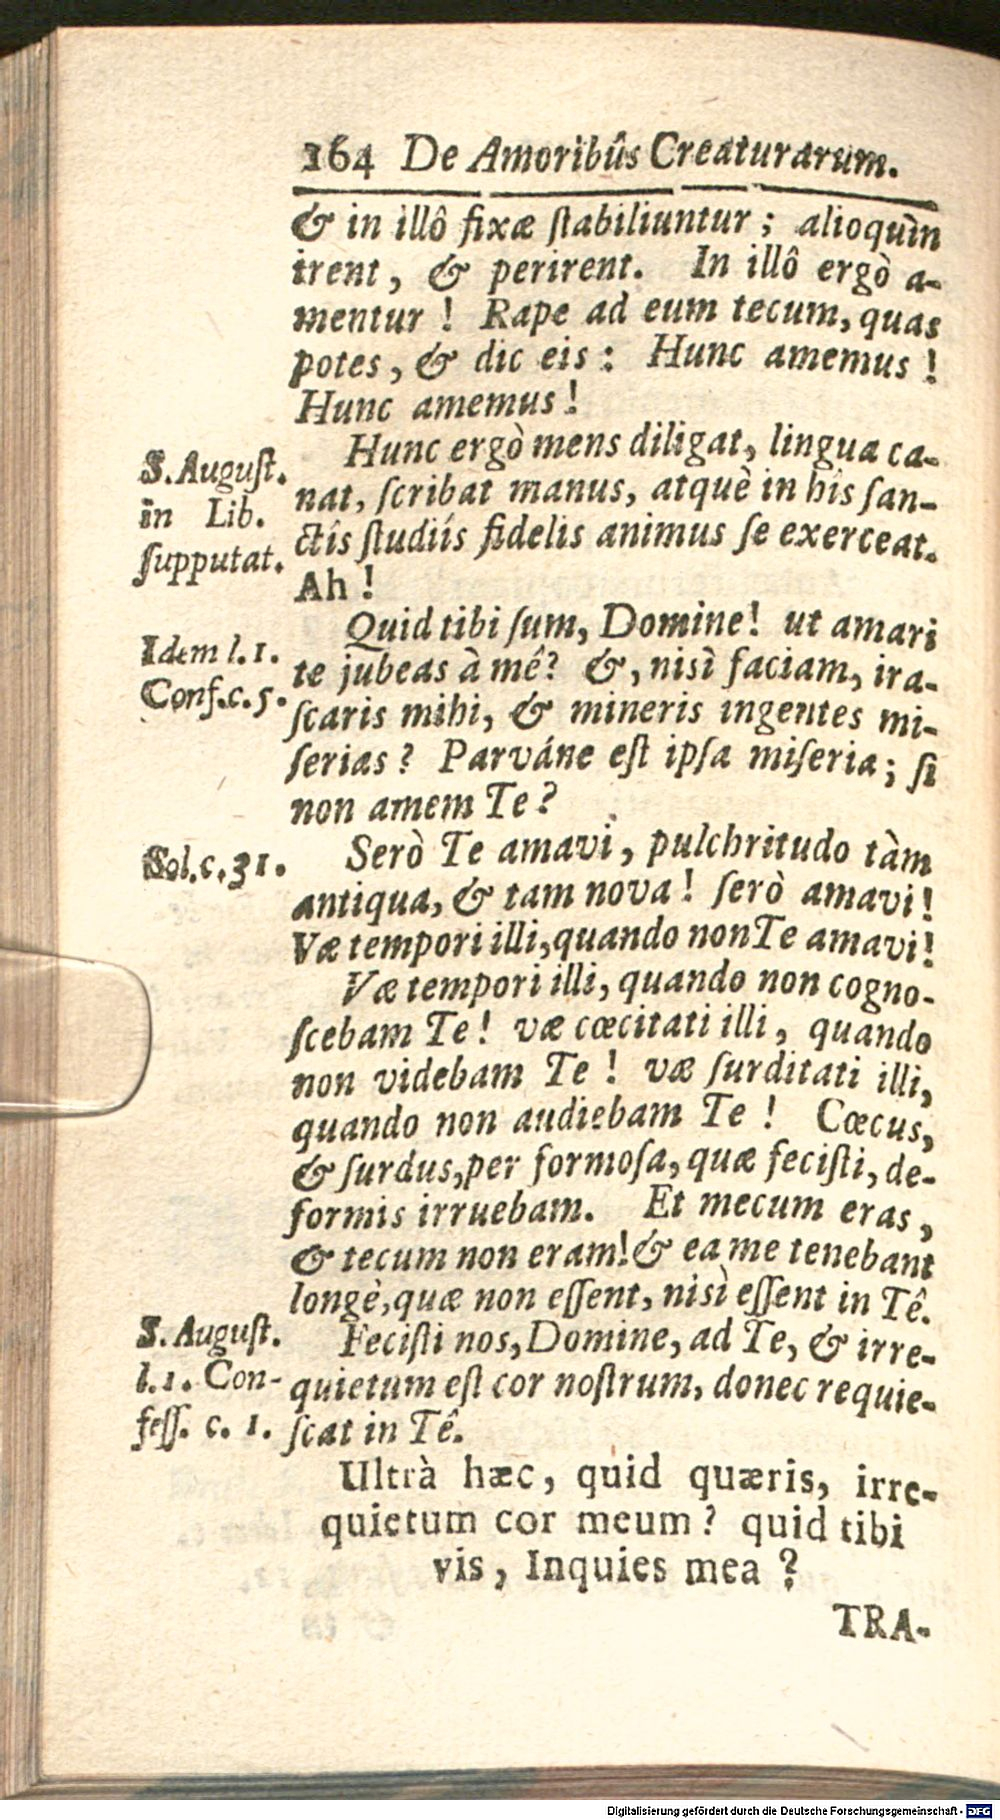 164 De Amoribûs Creaturarum.
& in illô fixæ ſtabiliuntur ; alioquìn
irent, & perirent. In illô ergò a-
mentur ! Rape ad eum tecum, quas
potes, & dic eis : Hunc amemus !
Hunc amemus !
Hunc ergò mens diligat, lingua ca-
nat, ſcribat manus, atquè in his ſan-
ctis ſtudiís fidelis animus ſe exerceat.
Ah !
S. Auguſt.
in Lib.
ſupputat.
Quid tibi ſum, Domine! ut amari
te jubeas à mê? &, nisì faciam, ira-
ſcaris mihi, & mineris ingentes mi-
ſerias ? Parváne eſt ipſa miſeria; ſi
non amem Te ?
Idem l. 1.
Conf. c. 5.
Serò Te amavi, pulchritudo tàm
antiqua, & tam nova ! ſerò amavi !
Væ tempori illi, quando non Te amavi!
Sol. c. 31.
Væ tempori illi, quando non cogno-
ſcebam Te ! væ cœcitati illi, quando
non videbam Te ! væ ſurditati illi,
quando non audiebam Te ! Cœcus,
& ſurdus, per formoſa, quæ feciſti, de-
formis irruebam. Et mecum eras,
& tecum non eram! & ea me tenebant
longè, quæ non eſſent, nisì eſſent in Tê.
Feciſti nos, Domine, ad Te, & irre-
quietum eſt cor noſtrum, donec requie-
ſcat in Tê.
S. Auguſt.
l. 1. Con-
feſſ. c. 1.
Ultrà hæc, quid quæris, irre-
quietum cor meum ? quid tibi
vis, Inquies mea ?
TRA-
Digitalisierung gefördert durch die Deutsche Forschungsgemeinschaft - DFG